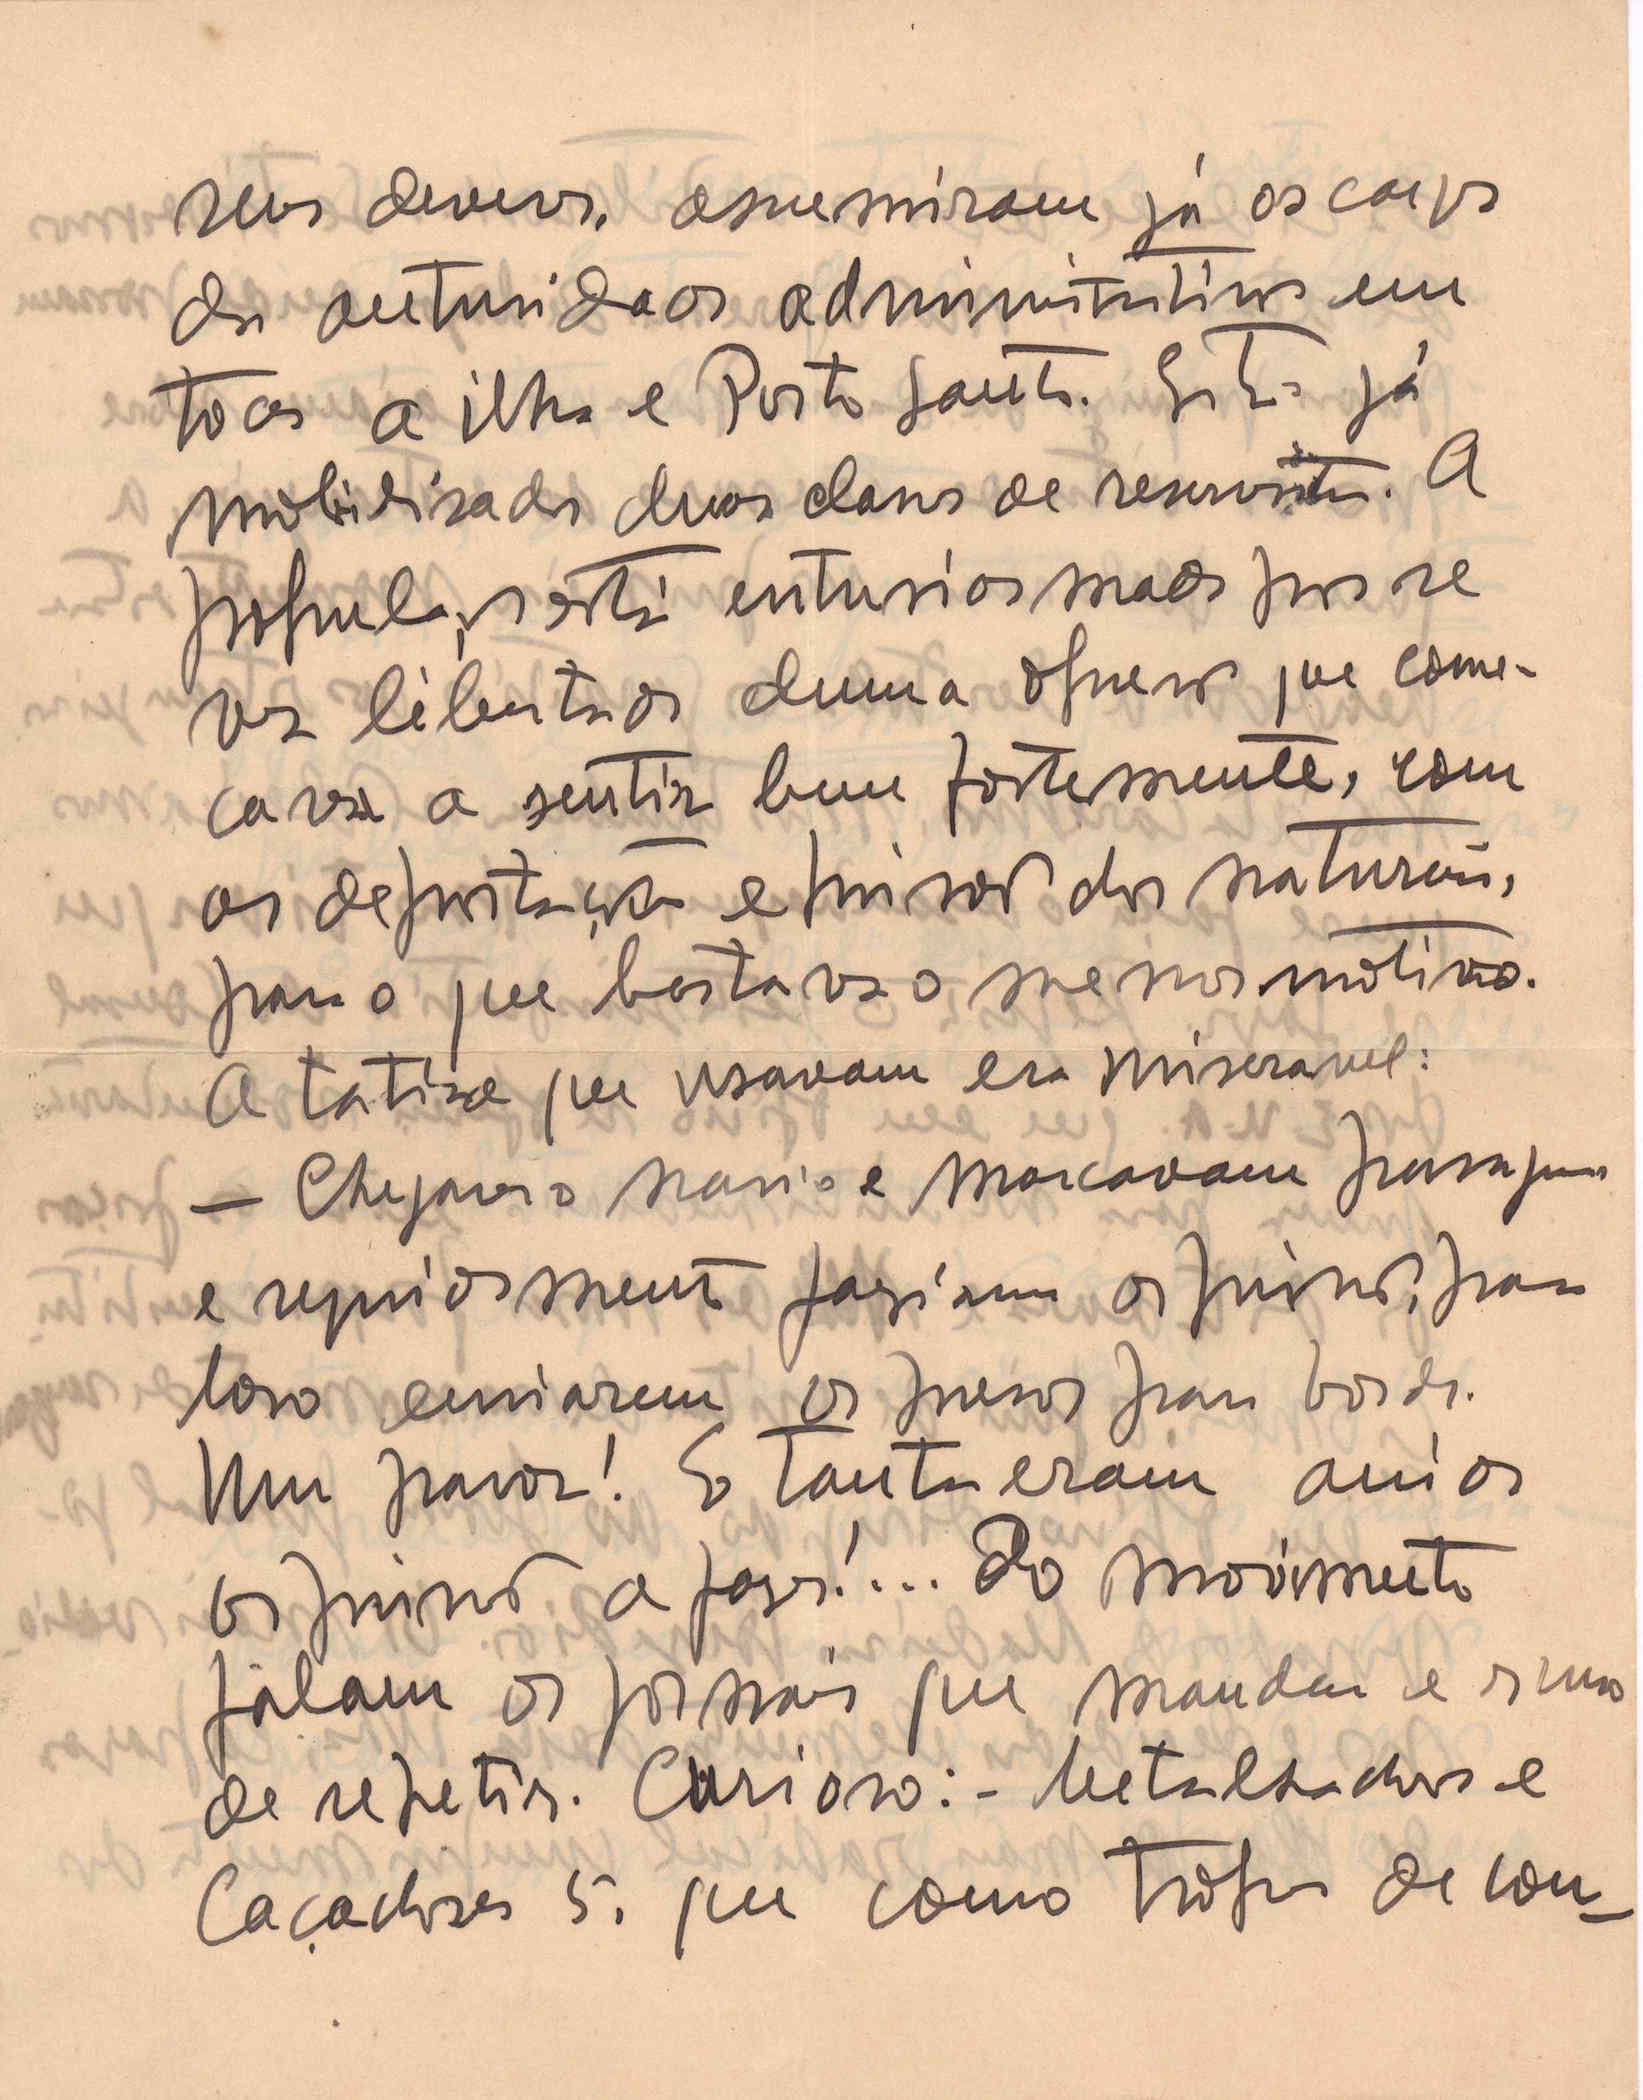 seus deveres, assumiram já os cargos
de autoridades administrativas em
toda a ilha e Porto Santo. Estão já
mobilisados duas classes de reservistas. A
população está entusiasmada por se
ver libertada duma opressão que come-
çava a sentir bem fortemente, com
as deportações e prisões dos naturais,
para o que bastava o menor motivo.
A tatica que usavam era miseravel:
— Chegava o navio e marcavam passagens
e seguidamente faziam as prisões, para
logo enviarem os presos para bordo.
Um pavor! E tantas eram ainda
as prisões a fazer!... Do movimento
falam os jornais que mandam e
de repetir. Curioso: - Metralhadoras e
Caçadores 5, que como tropas de con-